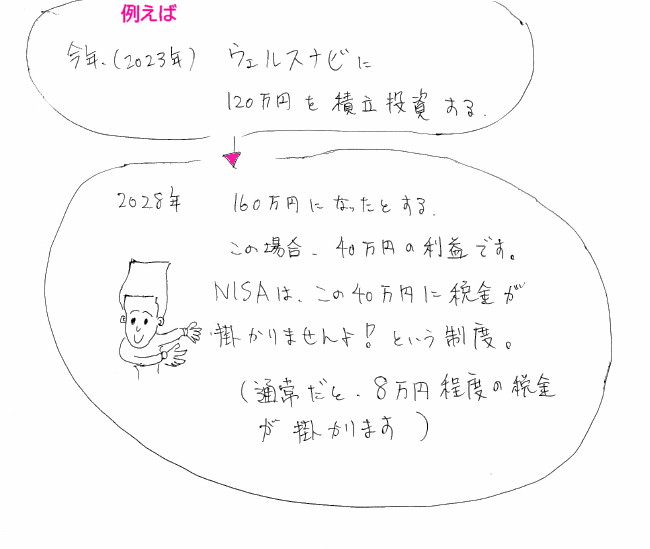 例えば
今年、(2023年) ウェルスナビに
120万円を積立投資する。
2028年 160万円になったとする。
この場合、40万円の利益です。
NISAは、この40万円に税金が
掛かりませんよ!という制度。
(通常だと、8万円程度の税金
が掛かります)